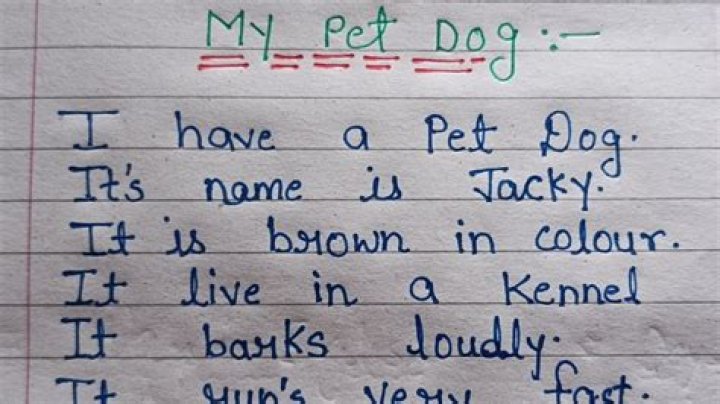 My Pet Dog :-
I have a Pet Dog.
It's name is Jacky.
It is brown in colour.
It live in a Kennel
It barks loudly.
It run's very fast.